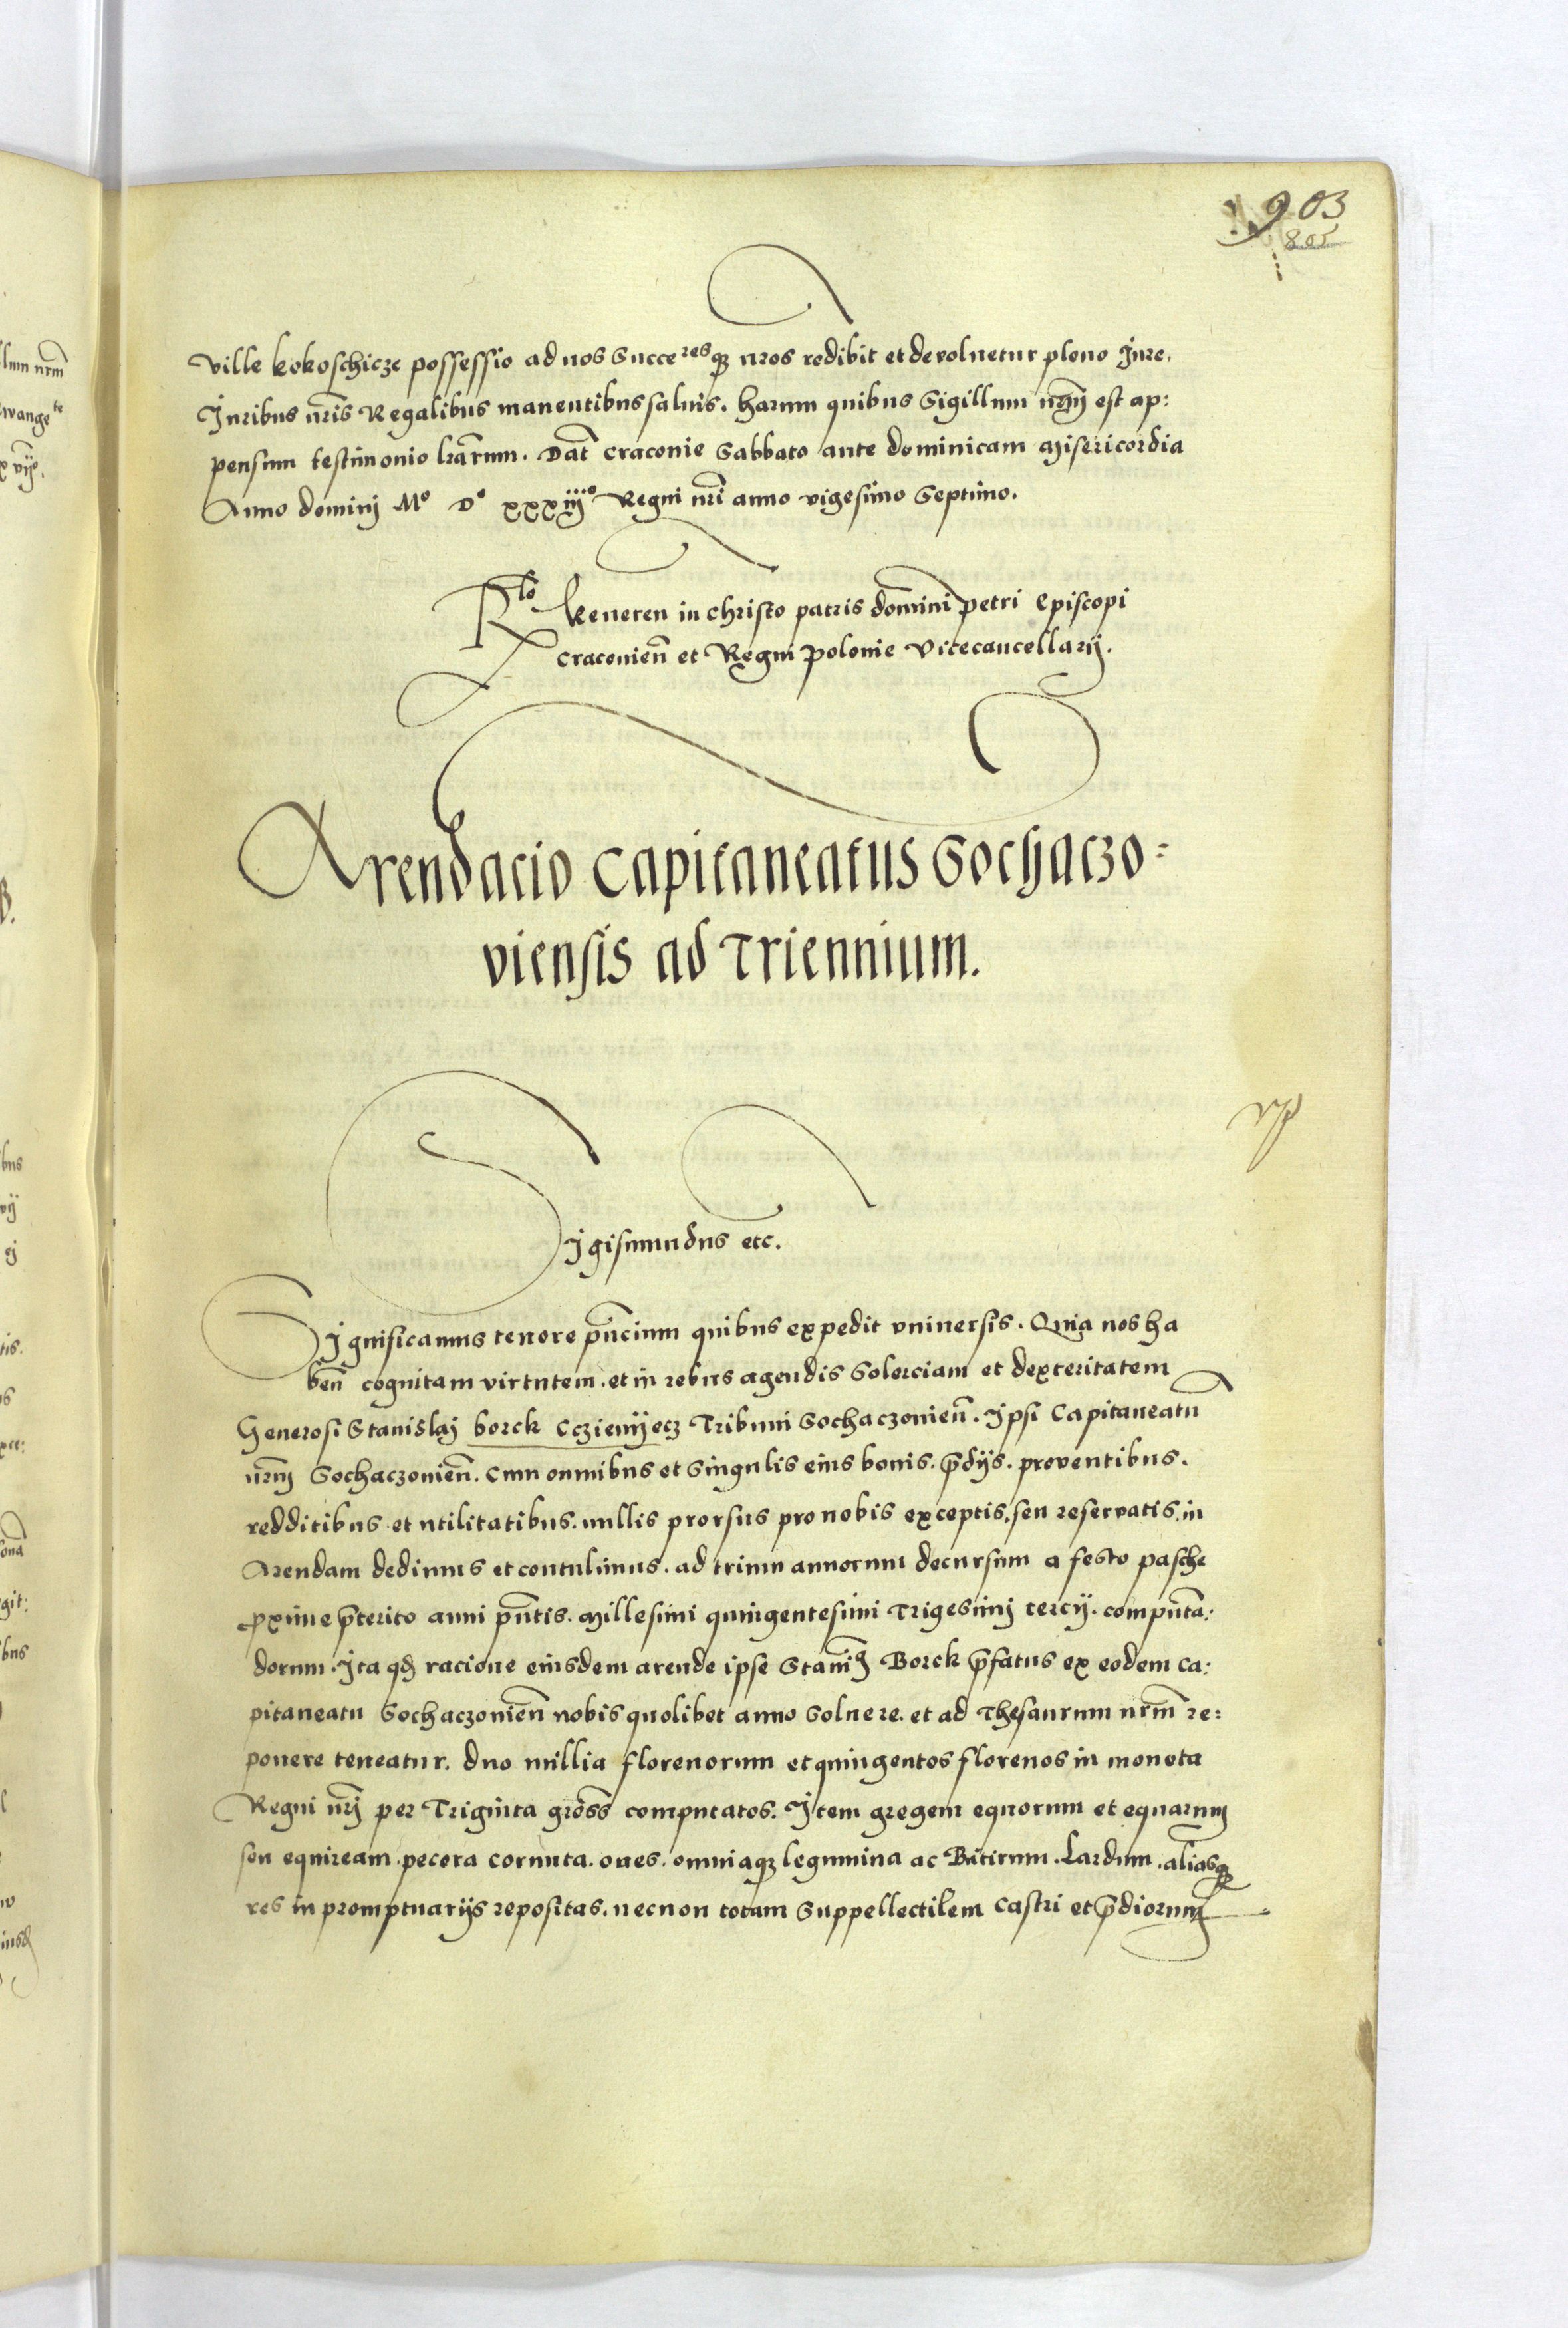 903
805
ville kokoschicze possessio ad nos Succeresqz nros redibit et devoluetur pleno Jure.
Juribus nr̄is Regalibus manentibus saluis. harum quibus Sigillum nr̄m est ap:
pensum testimonio lrārum. Dat̄ Cracovie Sabbato ante dominicam Misericordia
Anno dominj Mº Dº xxxiijº Regni nrī anno vigesimo Septimo.
Rlo Reueren in christo patris domini petri Episcopi
Cracovien̄ et Regni polonie vicecancellarij.
Arendacio Capitaneatus Sochaczo=
viensis ad Triennium.
Sigismundus etc.
Significamus tenore pn̄cium quibus expedit vniuersis. Quia nos ha
ben̄ cognitam virtutem. et in rebus agendis Solerciam et dexteritatem
Generosi Stanislaj borck Cczieniyecz Tribuni Sochaczouien̄. Ipsi Capitaneatū
nr̄m Sochaczouien̄. cum omnibus et Singulis eius bonis. p̄dijs. proventibus.
redditibus et utilitatibus. nullis prorsus pro nobis exceptis. seu reservatis. in
Arendam dedimus et contulimus. ad trium annorum decursum a festo pasche
proxime p̄terito anni pn̄tis. Millesimi quingentesimi Trigesimj tercij. computa:
dorum. Ita qd̄ racione eiusdem arende ipse Stanil̄ Borck p̄fatus ex eodem Ca:
pitaneatu Sochaczouien̄ nobis quolibet anno Soluere. et ad Thesaurum nrm̄ re:
ponere teneatur. duo millia florenorum et quingentos florenos in moneta
Regni nrj̄ per Triginta gross̄ computatos. Item gregem equorum et equarum
seu equiream. pecora cornuta. oues. omniaqz legumina ac Butirum. Lardum. aliasqz
res in promptuarijs repositas. necnon totam Suppellectilem Castri et p̄diorum